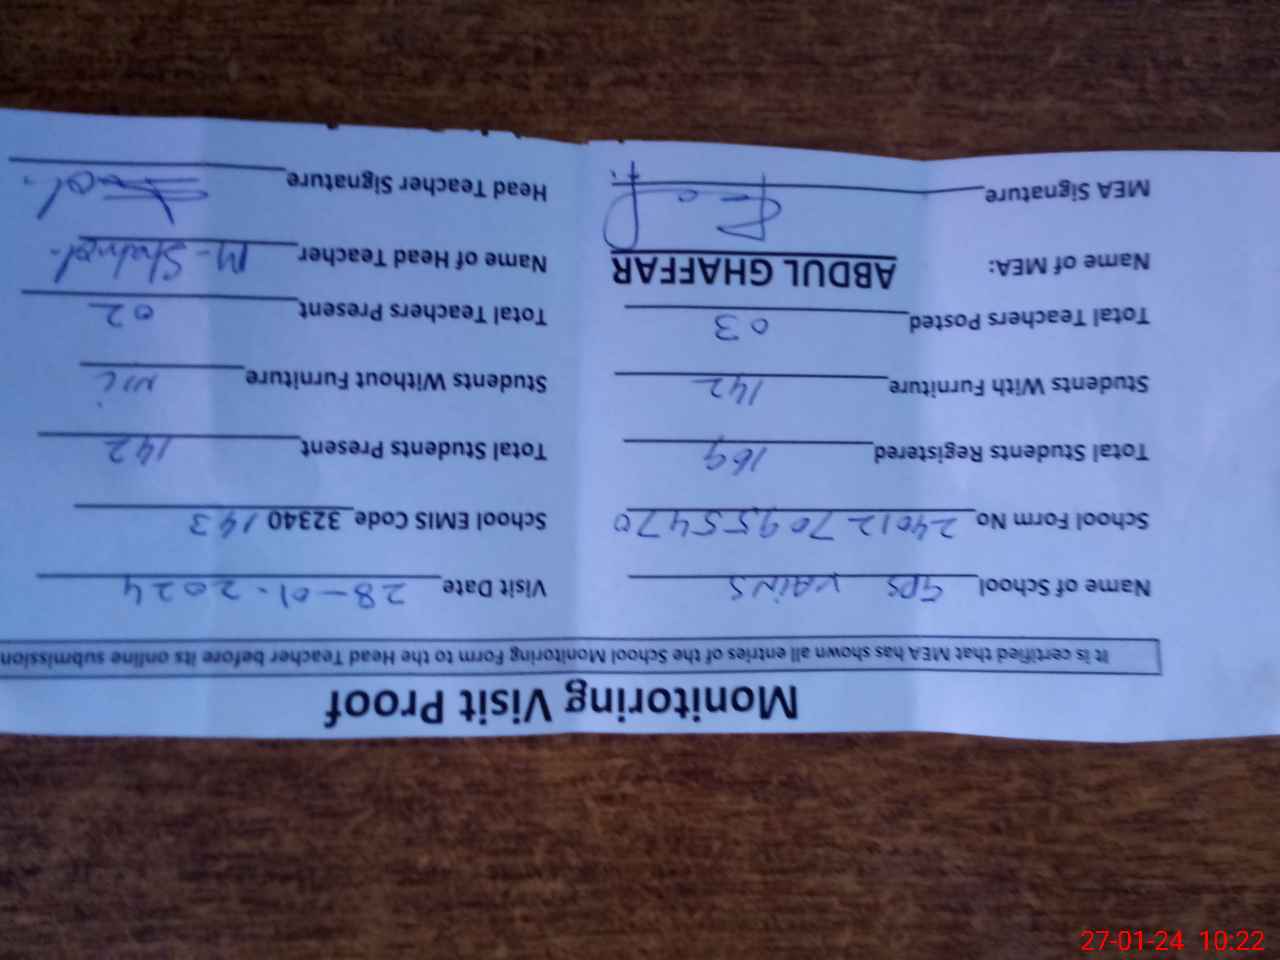 Monitoring Visit Proof
It is certified that MEA has shown all entries of the School Monitoring Form to the Head Teacher before its online submission
Name of School GPS VAINS Visit Date 28-01-2024
School Form No 2401270955470 School EMIS Code 32340143
Total Students Registered 169 Total Students Present 142
Students With Furniture 142 Students Without Furniture Nil
Total Teachers Posted 03 Total Teachers Present 02
Name of MEA: ABDUL GHAFFAR Name of Head Teacher M-
MEA Signature Head Teacher Signature
27-01-24 10:22